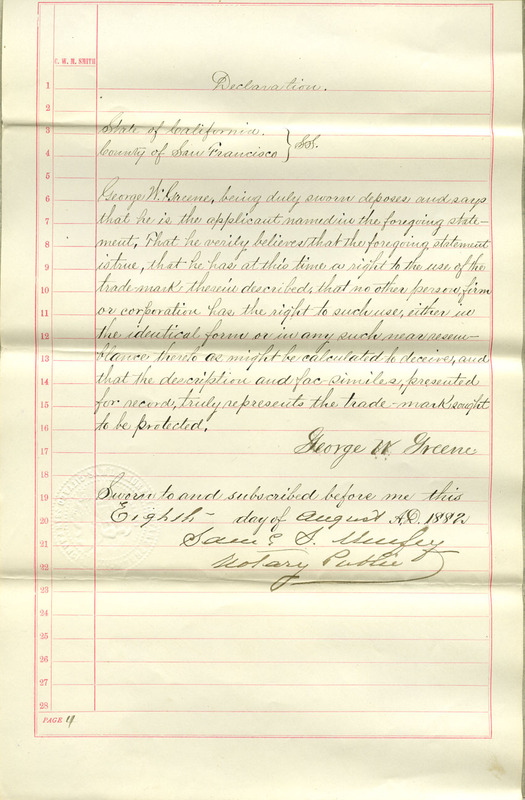 C. W. M. SMITH
1 Declaration.
2
3 State of California.
4 County of San Francisco } SS.
5
6 George W. Greene, being duly sworn deposes and says
7 that he is the applicant named in the foregoing state-
8 ment, that he verily believes that the foregoing statement
9 is true, that he has at this time a right to the use of the
10 trade mark therein described, that no other person, firm
11 or corporation has the right to such use, either in
12 the identical form or in any such near resem-
13 blance thereto as might be calculated to deceive, and
14 that the description and fac-similes, presented
15 for record, truly represents the trade-mark sought
16 to be protected.
17 George W. Greene
18
19 Sworn to and subscribed before me this
20 Eighth - day of August A.D. 1882
21 Saml S. Murfey
22 Notary Public
23
24
25
26
27
28
PAGE 4